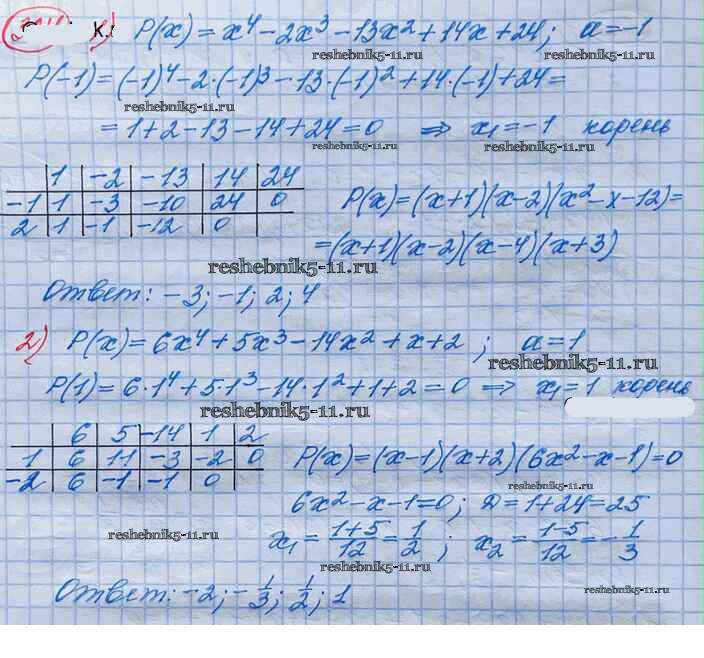 к. 1) P(x) = x⁴ − 2x³ − 13x² + 14x + 24; a = −1
reshebnik5-11.ru
P(−1) = (−1)⁴ − 2·(−1)³ − 13·(−1)² + 14·(−1) + 24 =
reshebnik5-11.ru
= 1 + 2 − 13 − 14 + 24 = 0 ⇒ x₁ = −1 корень
reshebnik5-11.ru
1 | −2 | −13 | 14 | 24
−1 | 1 | −3 | −10 | 24 | 0
2 | 1 | −1 | −12 | 0
P(x) = (x+1)(x−2)(x²−x−12) =
= (x+1)(x−2)(x−4)(x+3)
reshebnik5-11.ru
Ответ: −3; −1; 2; 4
2) P(x) = 6x⁴ + 5x³ − 14x² + x + 2; a = 1
reshebnik5-11.ru
P(1) = 6·1⁴ + 5·1³ − 14·1² + 1 + 2 = 0 ⇒ x₁ = 1 корень
reshebnik5-11.ru
6 | 5 | −14 | 1 | 2
1 | 6 | 11 | −3 | −2 | 0
−2 | 6 | −1 | −1 | 0
P(x) = (x−1)(x+2)(6x²−x−1) = 0
reshebnik5-11.ru
6x² − x − 1 = 0; D = 1 + 24 = 25
reshebnik5-11.ru
x₁ = (1+5)/12 = 1/2; x₂ = (1−5)/12 = −1/3
reshebnik5-11.ru
reshebnik5-11.ru
Ответ: −2; −1/3; 1/2; 1